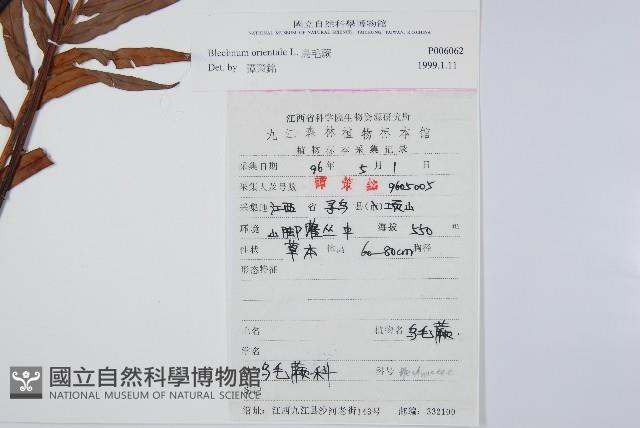 國立自然科學博物館
NATIONAL MUSEUM OF NATURAL SCIENCE, TAICHUNG, TAIWAN, R.O.CHINA
Blechnum orientale L. 烏毛蕨 P006062
Det. by 譚策銘 1999.1.11
江西省科学院生物资源研究所
九江森林植物标本馆
植物标本采集记录
采集日期 96 年 5 月 1 日
采集人及号数 譚策銘 9605005
采集地 江西 省 寻乌 县(市) 项山
环境 山脚灌丛中 海拔 550 m
性状 草本 体高 60-80cm 胸径
形态特征
土名 植物名 乌毛蕨
学名
乌毛蕨科 科号
馆址: 江西九江县沙河老街143号 邮编: 332100
國立自然科學博物館
NATIONAL MUSEUM OF NATURAL SCIENCE